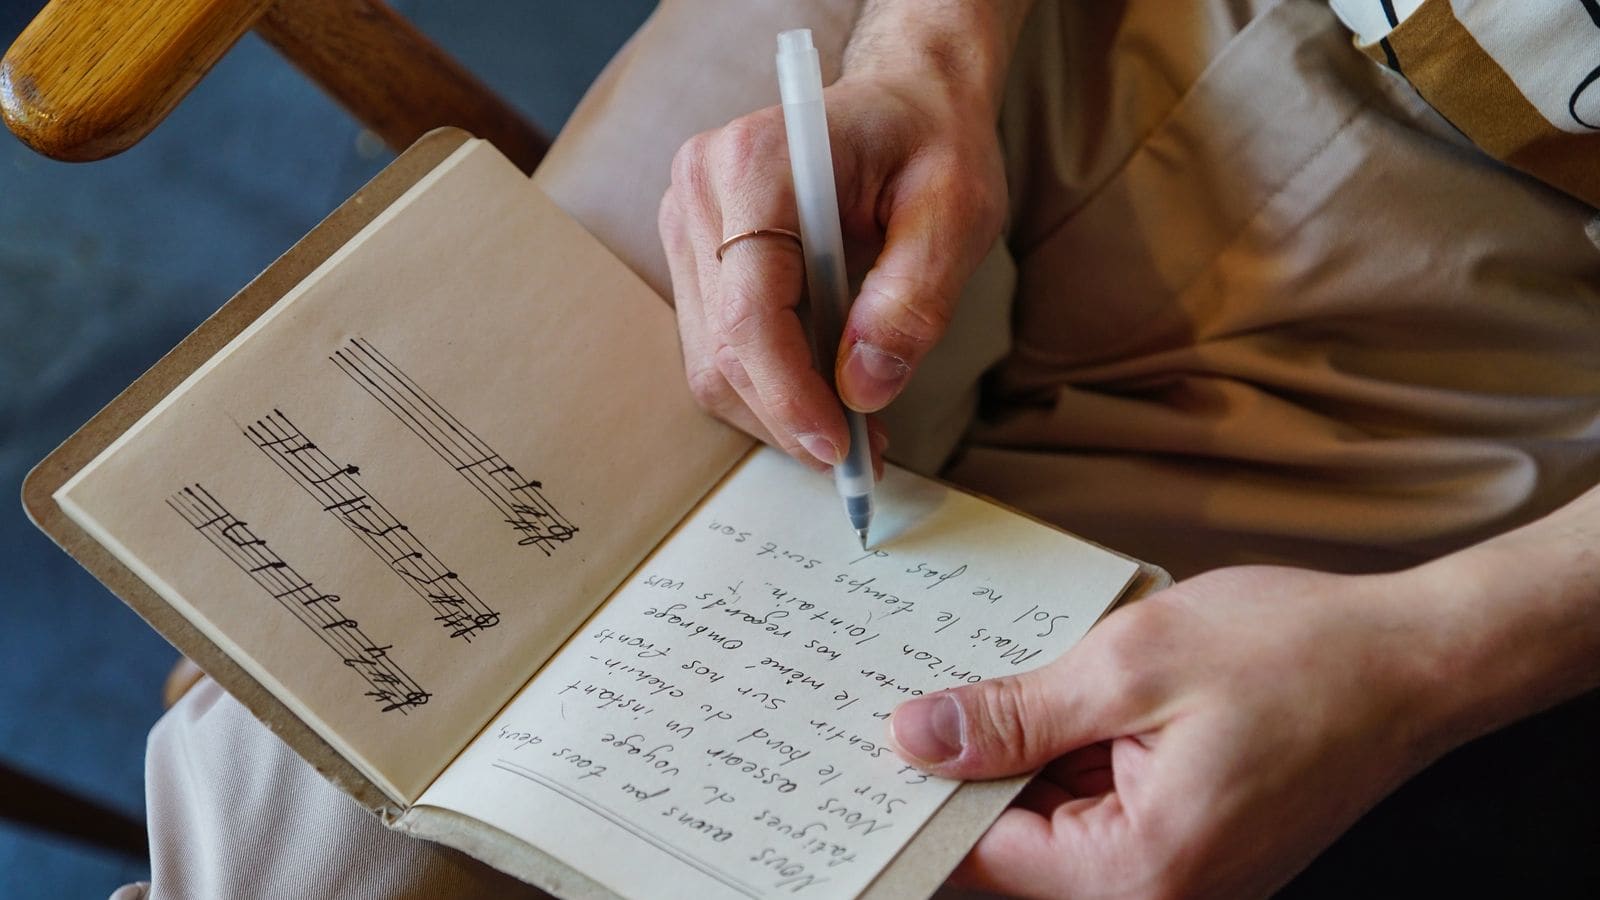 Nous avons pu tous deux,
fatigués du voyage
Nous asseoir un instant
Sur le bord du chemin-
Et sentir sur nos fronts
le même Ombrage
nos regards vers
lointain..
Mais le temps suit son
Sol ne pas d